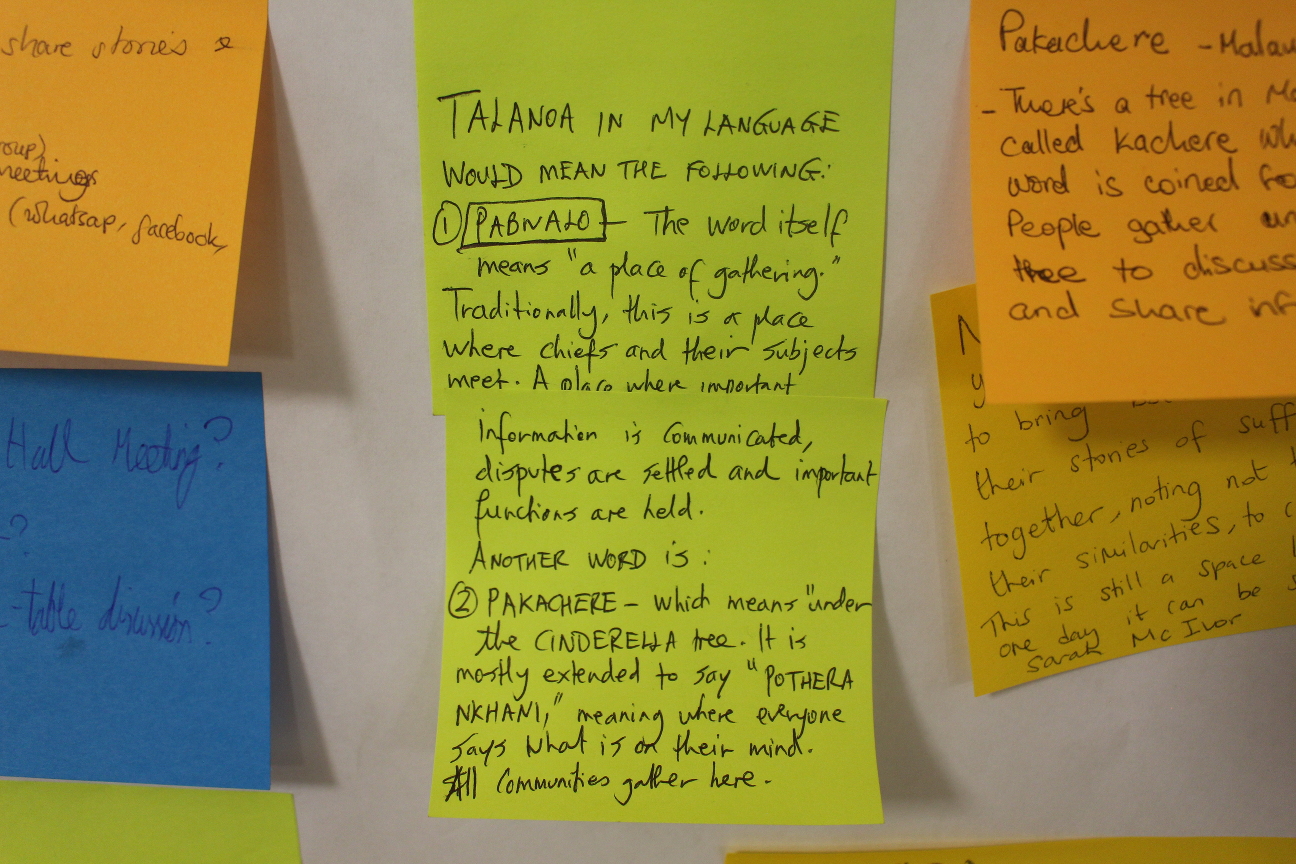 share stories &
roup)
meetings
(whatsap, facebook,
Hall Meeting?
?
-table discussion?
TALANOA IN MY LANGUAGE
WOULD MEAN THE FOLLOWING:
① PABWALO - The word itself
means "a place of gathering."
Traditionally, this is a place
where chiefs and their subjects
meet. A place where important
information is communicated,
disputes are settled and important
functions are held.
ANOTHER WORD IS:
② PAKACHERE - which means "under
the CINDERELLA tree. It is
mostly extended to say "POTHERA
NKHANI," meaning where everyone
says what is on their mind.
All communities gather here.
Pakachere - Malaw
- There's a tree in Ma
called Kachere wh
word is coined fro
People gather un
tree to discuss
and share inf
N
y
to bring
their stories of suff
together, noting not t
their similarities, to c
This is still a space
one day it can be s
Sarah Mc Ivor